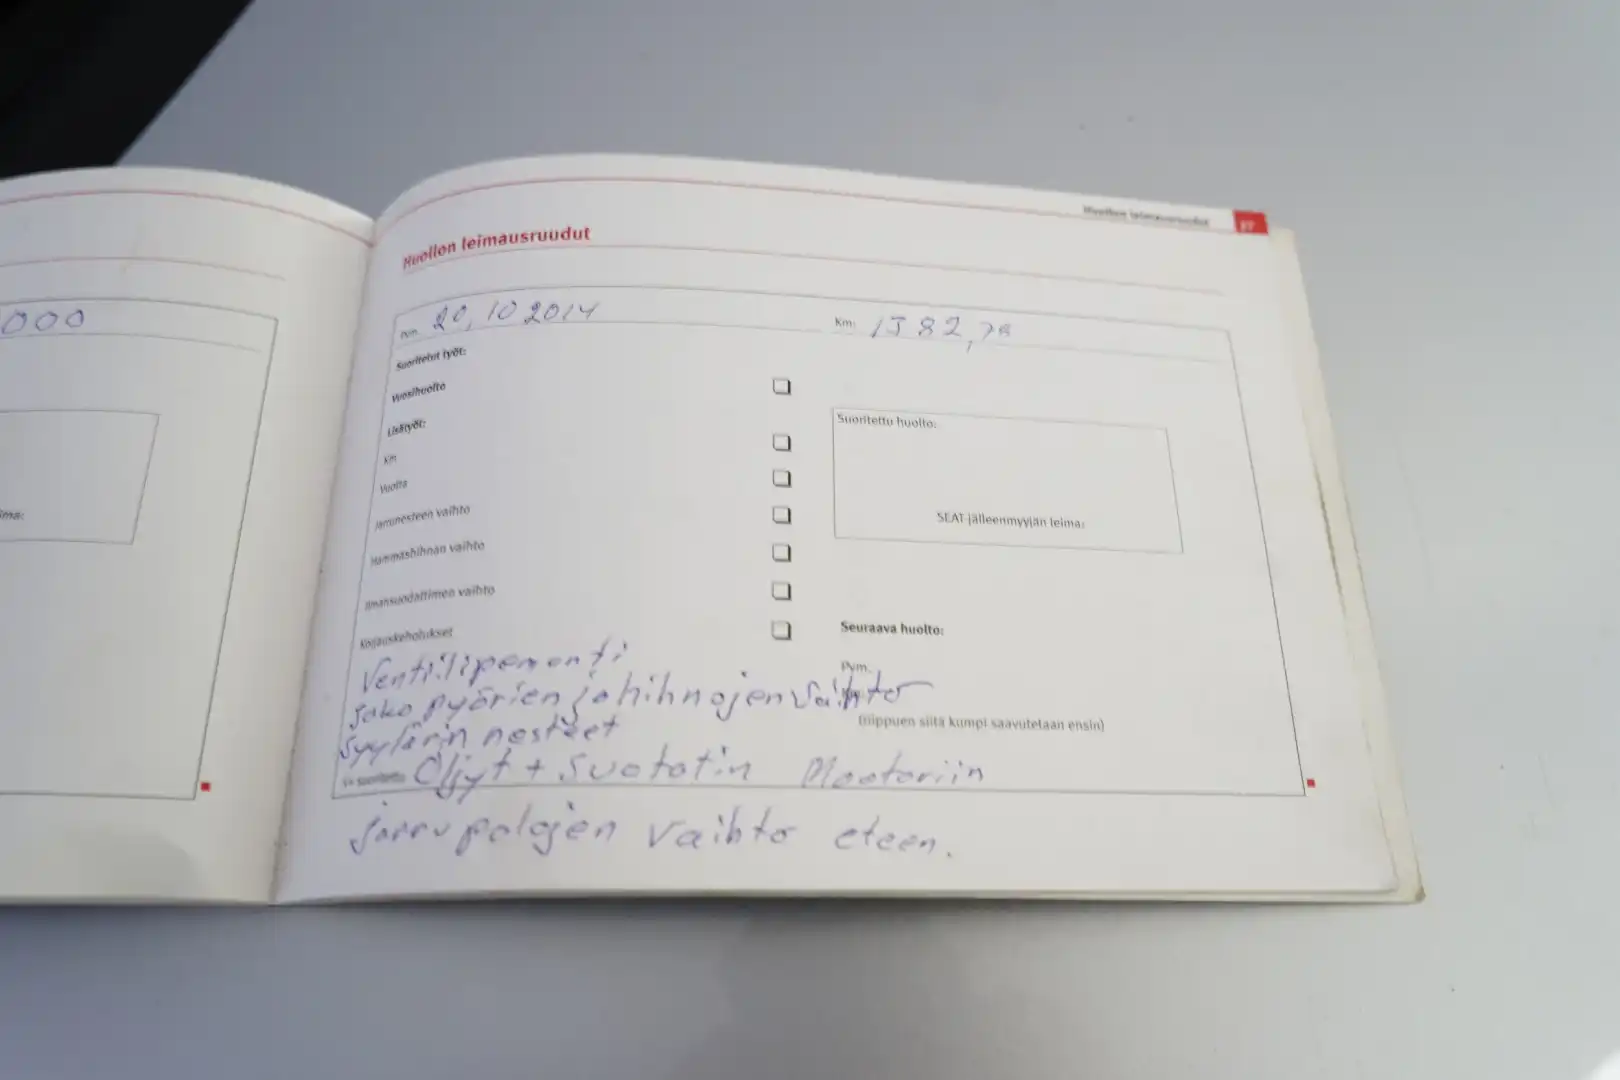 000
Huollon leimausruudut 37
Huollon leimausruudut
Pvm. 20,10 2014 Km: 1582,78
Suoritetut työt:
Vuosihuolto
Lisätyöt:
Km
Vuotta
Jarrunesteen vaihto
Hammashihnan vaihto
Ilmansuodattimen vaihto
Korjauskehotukset
Suoritettu huolto:
SEAT-jälleenmyyjän leima:
Seuraava huolto:
Pvm.
(riippuen siitä kumpi saavutetaan ensin)
Ventiilipemonti
jako pyörien ja hihnojen vaihto
Syylärin nesteet
Öljyt + Suotatin Mootoriin
jarru palojen vaihto eteen.